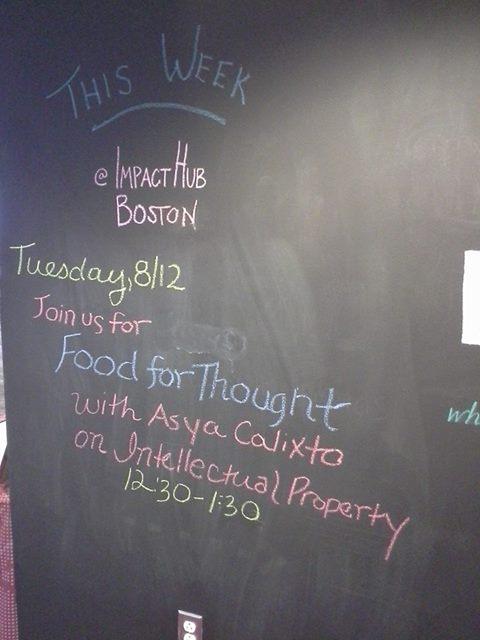 THIS WEEK
@ IMPACT HUB
BOSTON
Tuesday, 8/12
Join us for
Food for Thought
with Asya Calixto
on Intellectual Property
12:30-1:30
wh